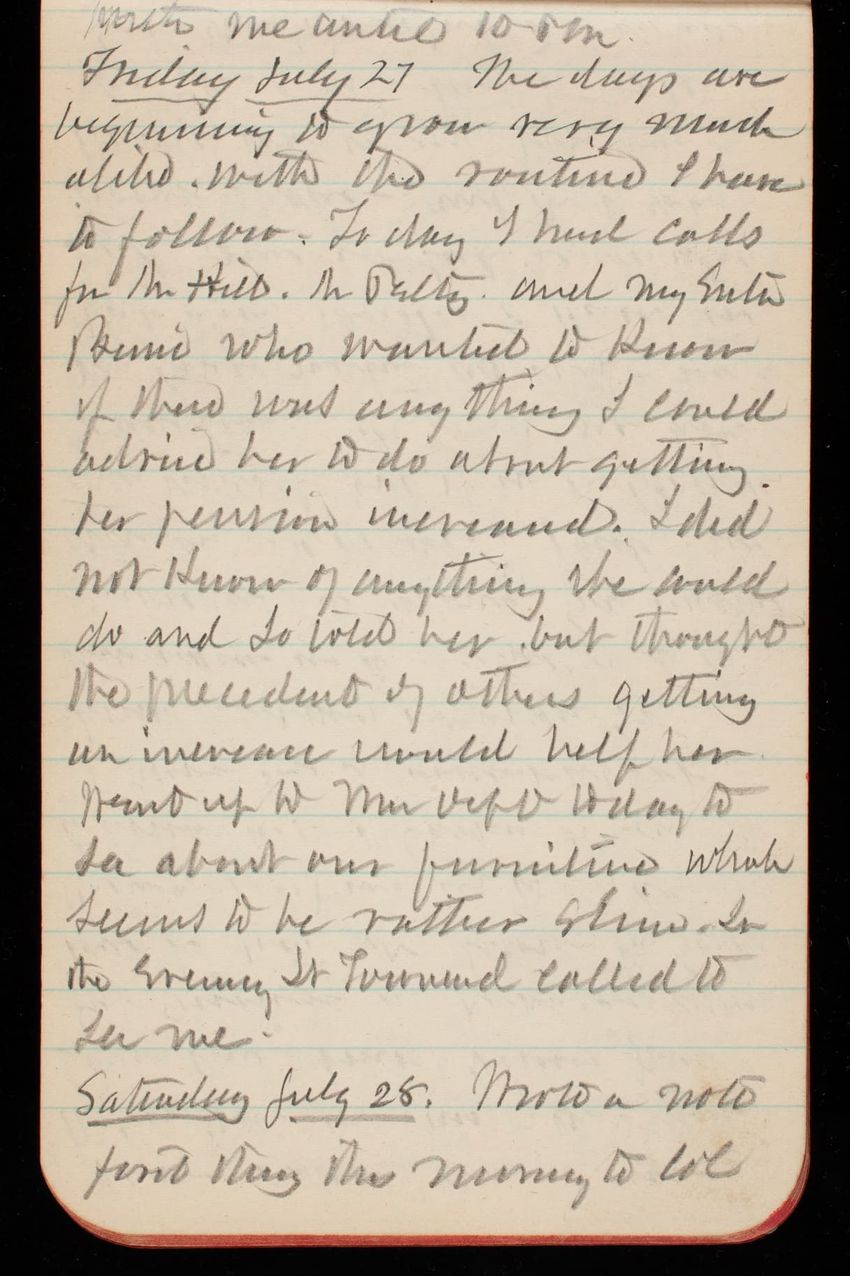 with me until 10 P.M.
Friday July 27 The days are
beginning to grow very much
alike. with the routine I have
to follow. To day I had calls
for Mr Hill. Mr Pelty. and my Sister
who wanted to Know
if there was anything I could
advise her to do about getting
her pension increased. I did
not Know of anything she could
do and so told her. but thought
the precedent of others getting
an increase would help her
Went up to War Dept today to
see about our furniture which
seems to be rather slim. In
the Evening Lt Townsend called to
see me.
Saturday July 28. Wrote a note
first thing this morning to Col